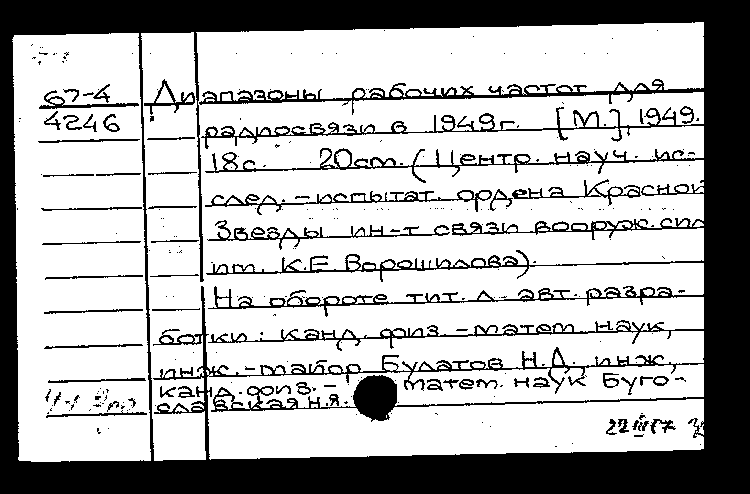 67-4 Диапазоны рабочих частот для
4246 радиосвязи в 1949г. [М.], 1949.
18с. 20см. (Центр. науч. ис-
след.-испытат. ордена Красной
Звезды ин-т связи вооруж. сил
им. К.Е Ворошилова).
На обороте тит. л. авт. разра-
ботки: канд. физ.-матем. наук,
инж.-майор Булатов Н.Д., инж,
канд. физ.- матем. наук Буго-
славская Н.Я.
22 III 67